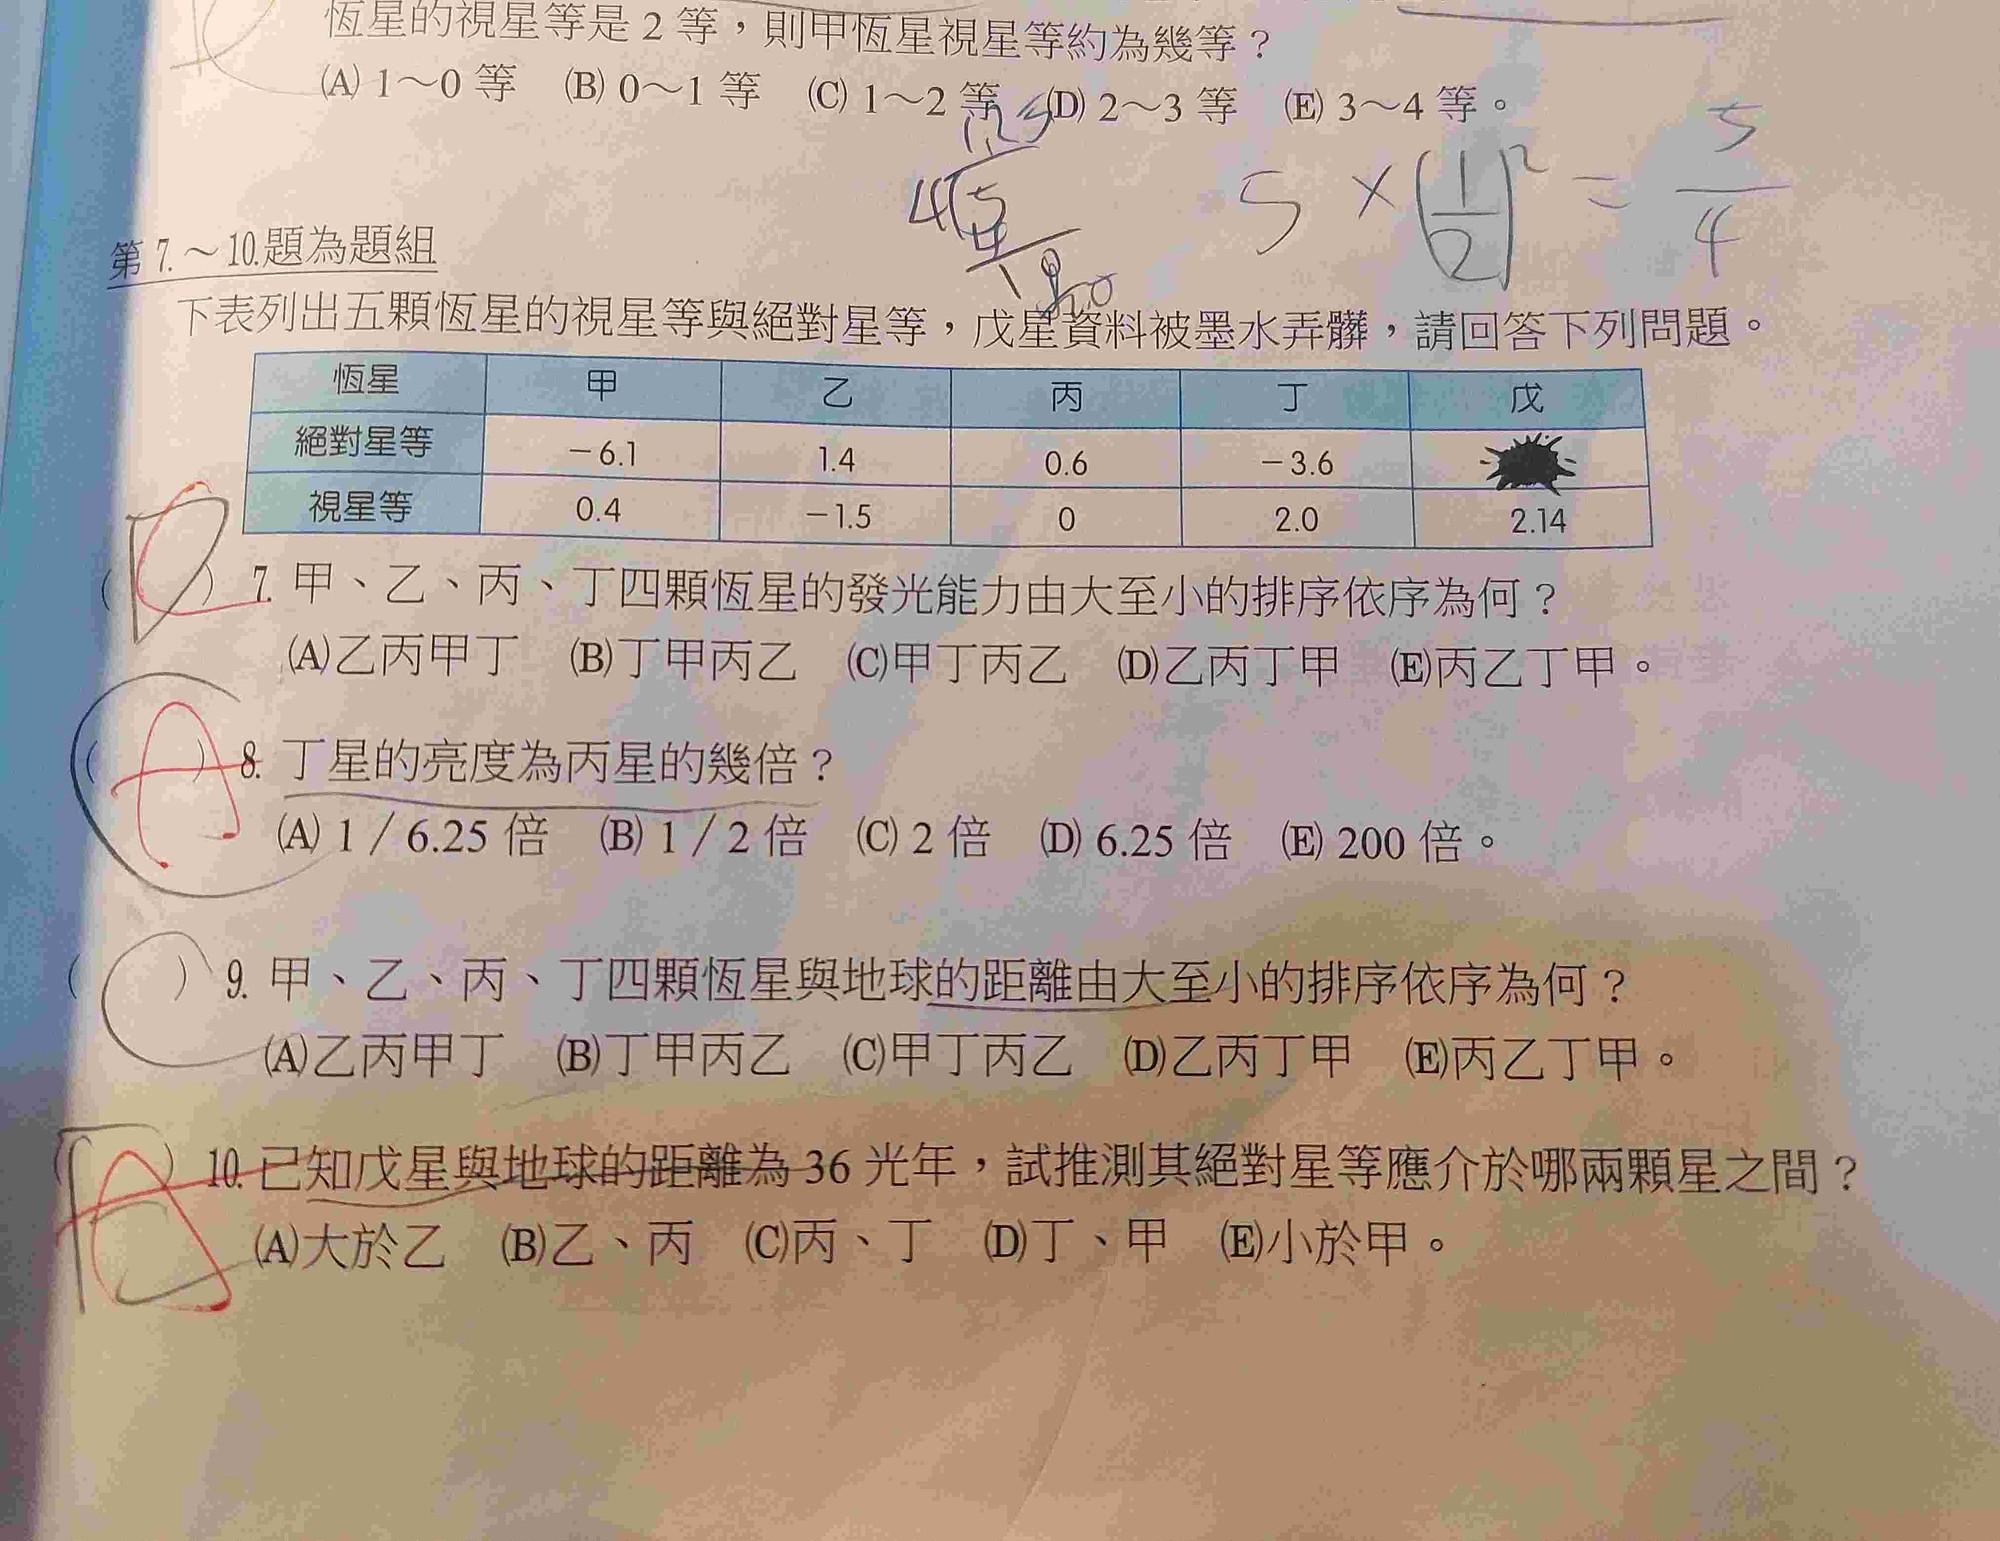 恆星的視星等是 2 等，則甲恆星視星等約為幾等？
(A) 1～0 等 (B) 0～1 等 (C) 1～2 等 (D) 2～3 等 (E) 3～4 等。
5 × (1/2)² = 5/4
第 7.～10.題為題組
下表列出五顆恆星的視星等與絕對星等，戊星資料被墨水弄髒，請回答下列問題。
恆星 甲 乙 丙 丁 戊
絕對星等 －6.1 1.4 0.6 －3.6
視星等 0.4 －1.5 0 2.0 2.14
( ) 7. 甲、乙、丙、丁四顆恆星的發光能力由大至小的排序依序為何？
(A)乙丙甲丁 (B)丁甲丙乙 (C)甲丁丙乙 (D)乙丙丁甲 (E)丙乙丁甲。
( A ) 8. 丁星的亮度為丙星的幾倍？
(A) 1／6.25 倍 (B) 1／2 倍 (C) 2 倍 (D) 6.25 倍 (E) 200 倍。
( C ) 9. 甲、乙、丙、丁四顆恆星與地球的距離由大至小的排序依序為何？
(A)乙丙甲丁 (B)丁甲丙乙 (C)甲丁丙乙 (D)乙丙丁甲 (E)丙乙丁甲。
( A ) 10. 已知戊星與地球的距離為 36 光年，試推測其絕對星等應介於哪兩顆星之間？
(A)大於乙 (B)乙、丙 (C)丙、丁 (D)丁、甲 (E)小於甲。